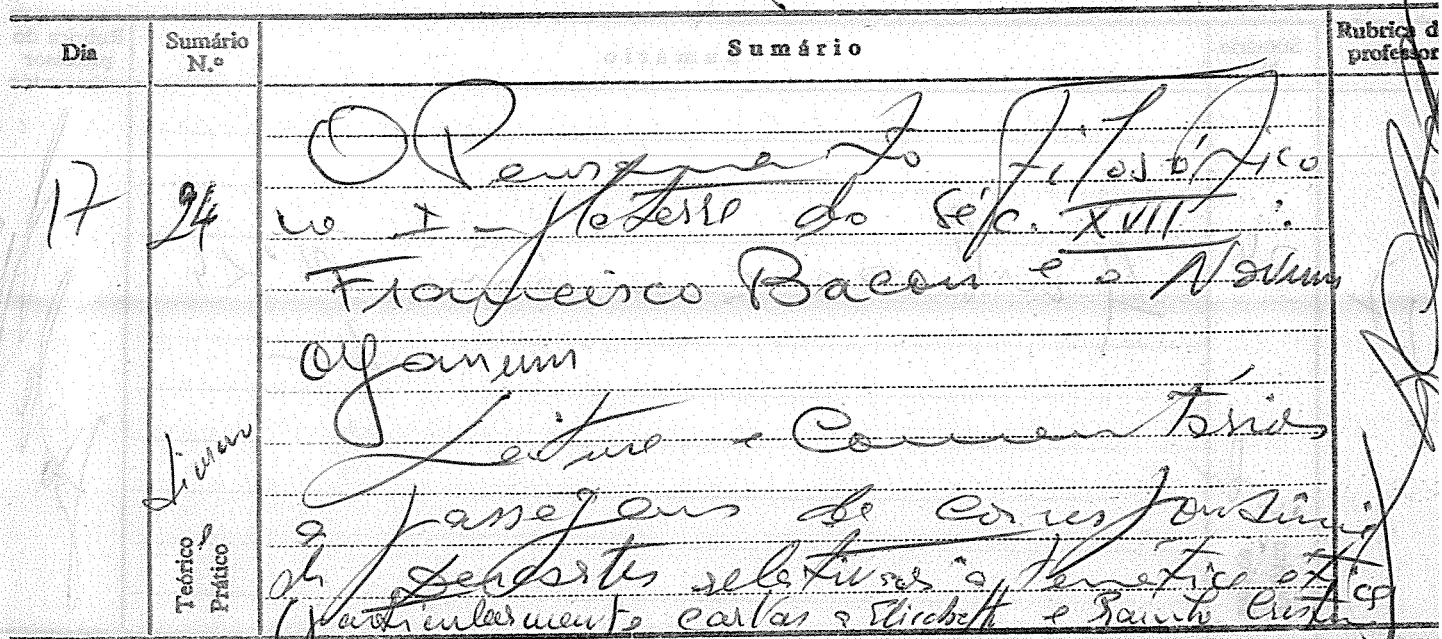 Dia
Sumário N.º
Sumário
Rubrica do professor
17
24
O Pensamento Filosófico
na Inglaterra do séc. XVII :
Francisco Bacon e o Novum
Organum
Leitura e Comentários
a passagens da correspondência
de Descartes relativas à temática ética
(particularmente cartas a Elisabeth e Rainha Cristina
Teórico e
Prático